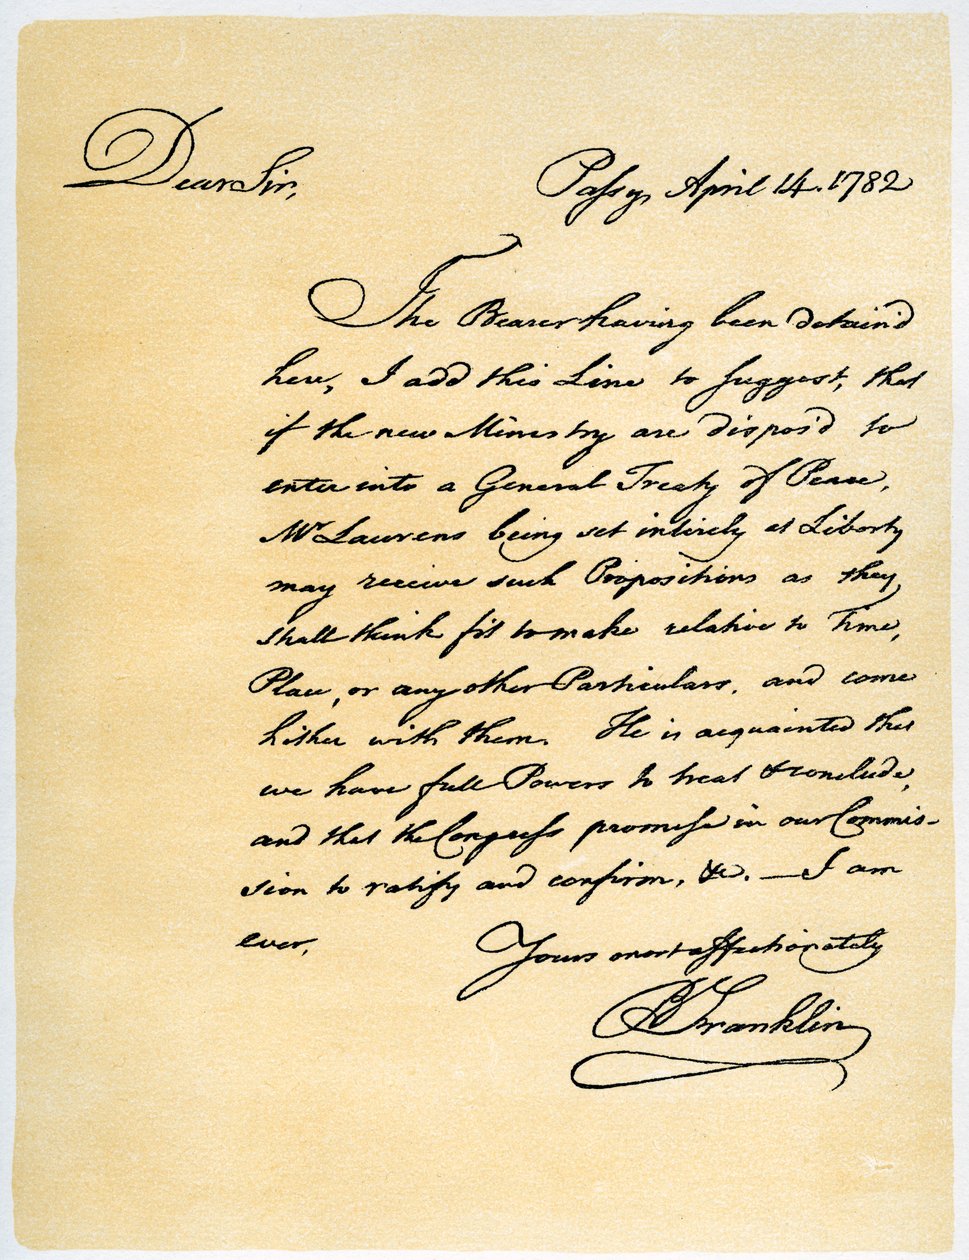 Dear Sir,
Passy, April 14. 1782
The Bearer having been detain'd
here, I add this Line to suggest, that
if the new Ministry are dispos'd to
enter into a General Treaty of Peace,
Mr Laurens being set intirely at Liberty
may receive such Propositions as they
shall think fit to make relative to Time,
Place, or any other Particulars, and come
hither with them. He is acquainted that
we have full Powers to treat & conclude,
and that the Congress promise in our Commis-
sion to ratify and confirm, &c. — I am
ever,
Yours most affectionately
B Franklin